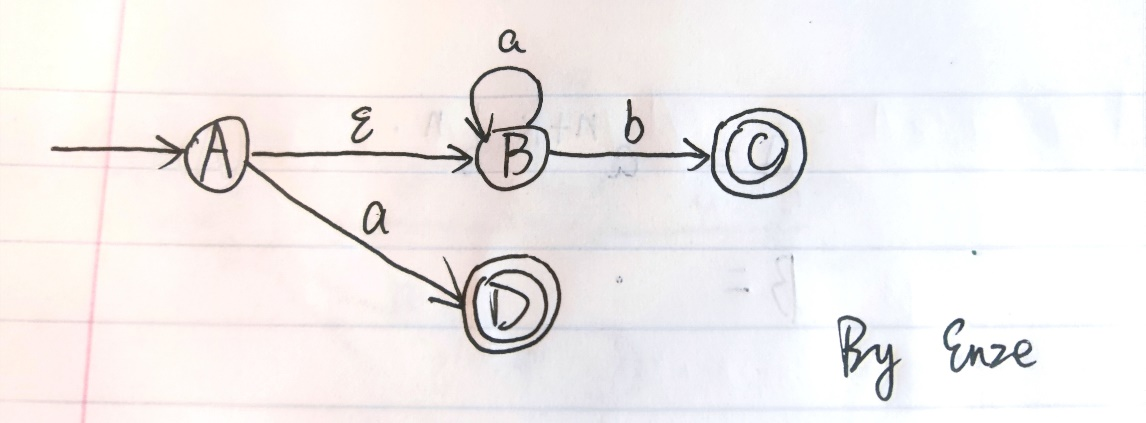 a
ε b
A B C
a
D
By Enze